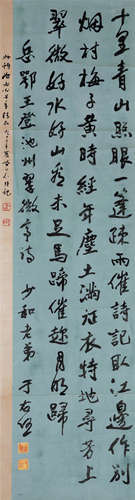 十里青山照眼一篷疏雨催詩記取江邊作別
烟村梅子黄時經年塵土滿征衣特地尋芳上
翠微好水好山看未足馬蹄催趁月明歸
岳鄂王登池州翠微亭詩 少和老弟 于右任